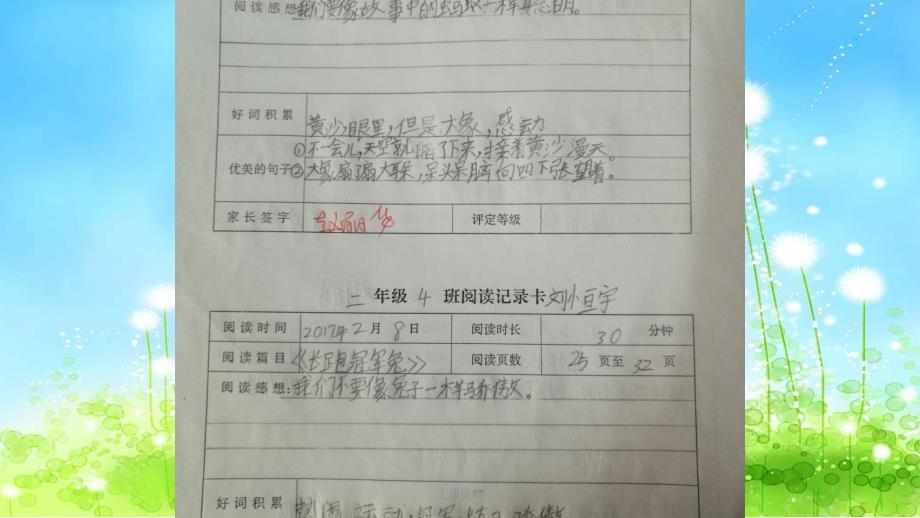 阅读感想 我们要像故事中的蚂蚁一样聪明。
好词积累 黄沙,眼里,但是,大象,感动
①不一会儿,天空就暗了下来,接着黄沙漫天。
优美的句子 ②大象扇了扇大耳朵,呆头呆脑向四下张望着。
家长签字 评定等级
二年级4班阅读记录卡 刘小亘宇
阅读时间 2017年2月8日 阅读时长 30分钟
阅读篇目 《长跑冠军兔》 阅读页数 25页至32页
阅读感想:我们不要像兔子一样骄傲。
上课资料
好词积累 运动,冠军,练习,骄傲